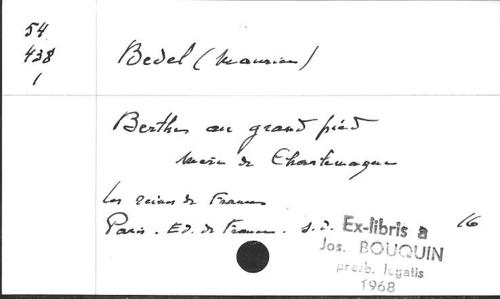 54
438
1
Bedel (Maurice)
Berthe au grand pied
mère de Charlemagne
Les reines de France
Paris. Ed. de France. s.d. 16
Ex-libris a
Jos. BOUQUIN
presb. legatis
1968